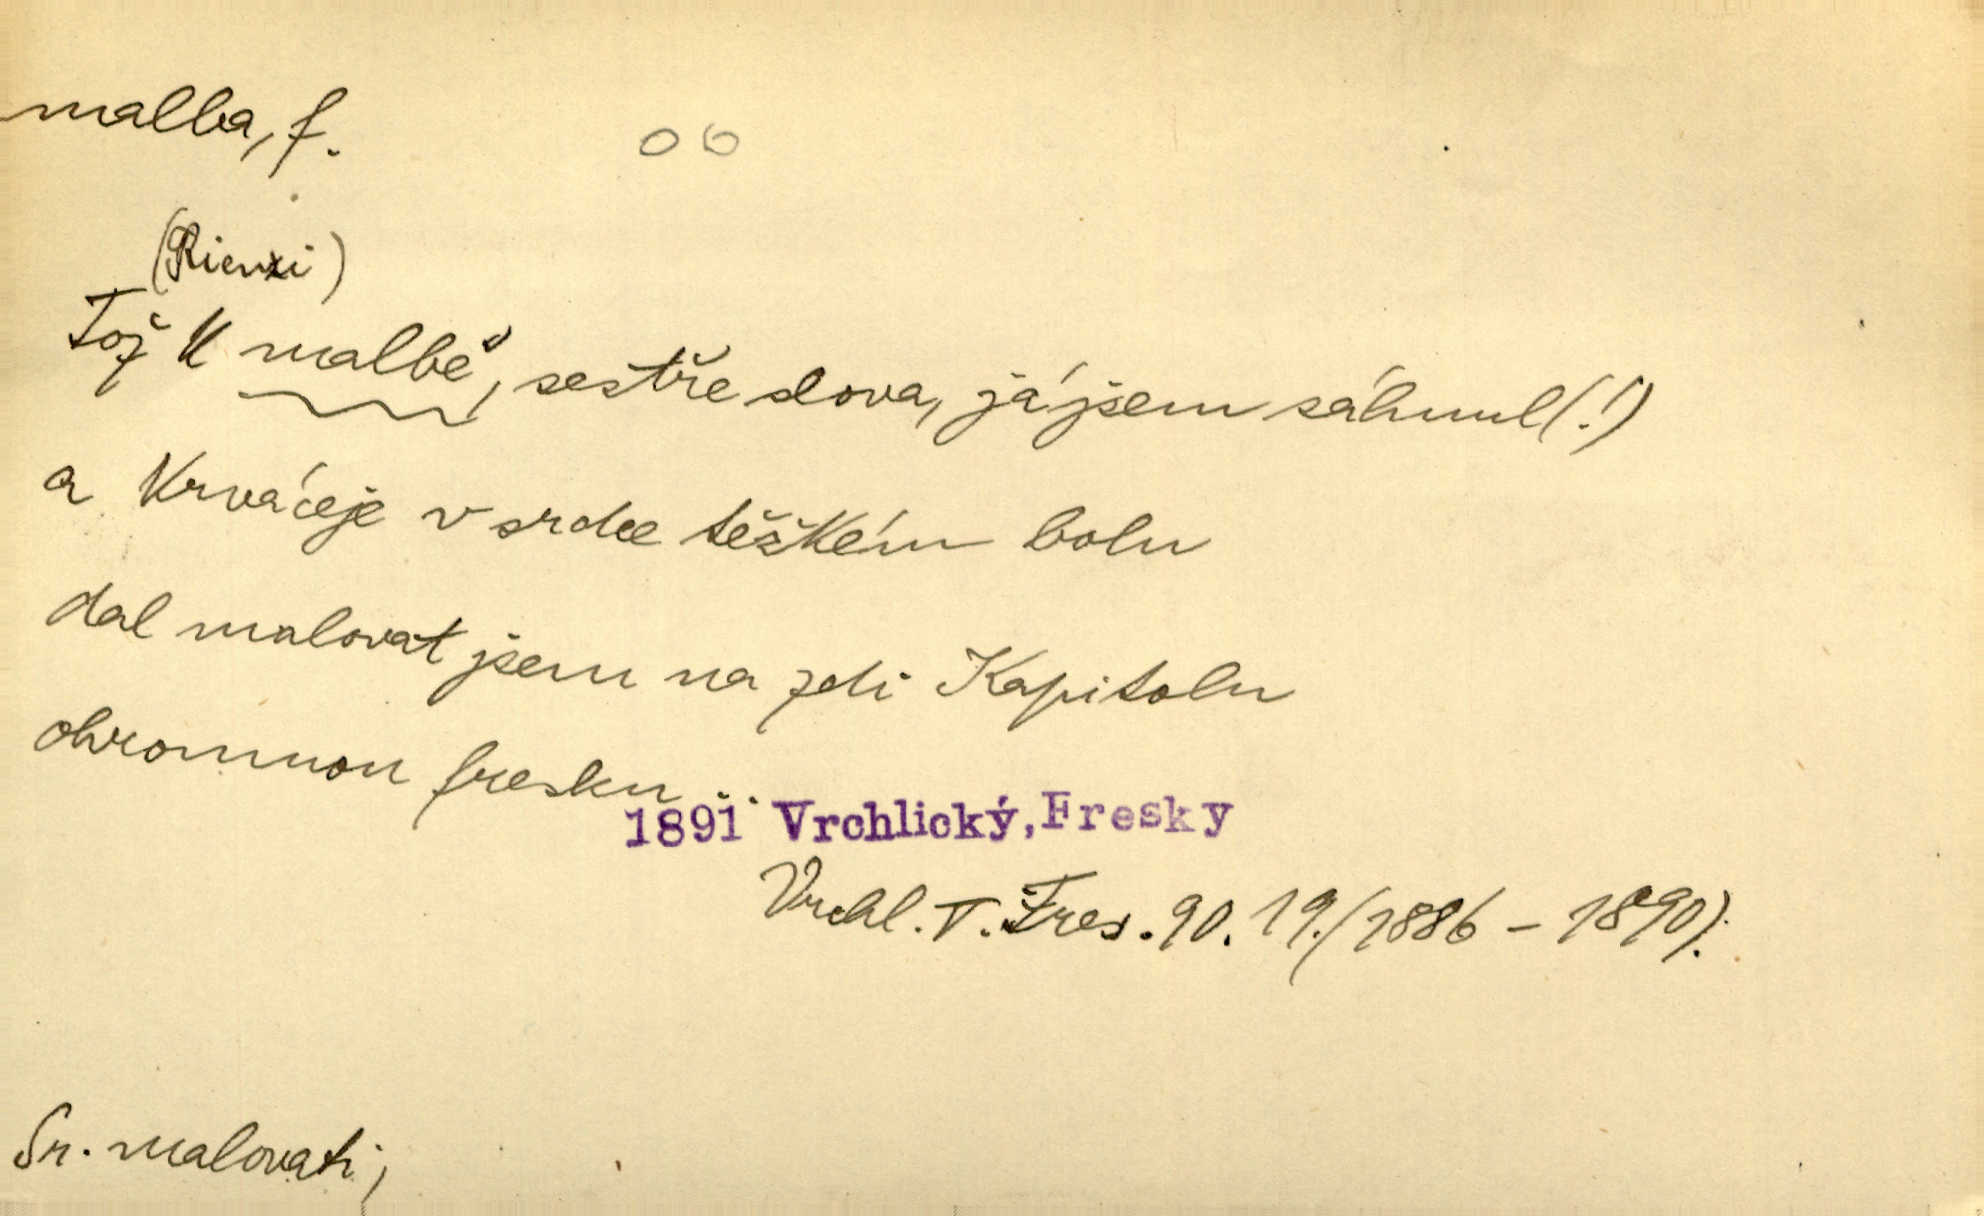 malba, f.
00
(Rienzi)
Tož k malbě, sestře slova, já jsem sáhnul (!)
a krváceje v srdce těžkém bolu
dal malovat jsem na zdi Kapitolu
ohromnou fresku ..
1891 Vrchlický, Fresky
Vrchl. T. Fres. 90. 19. (1886 - 1890).
Sr. malovati,